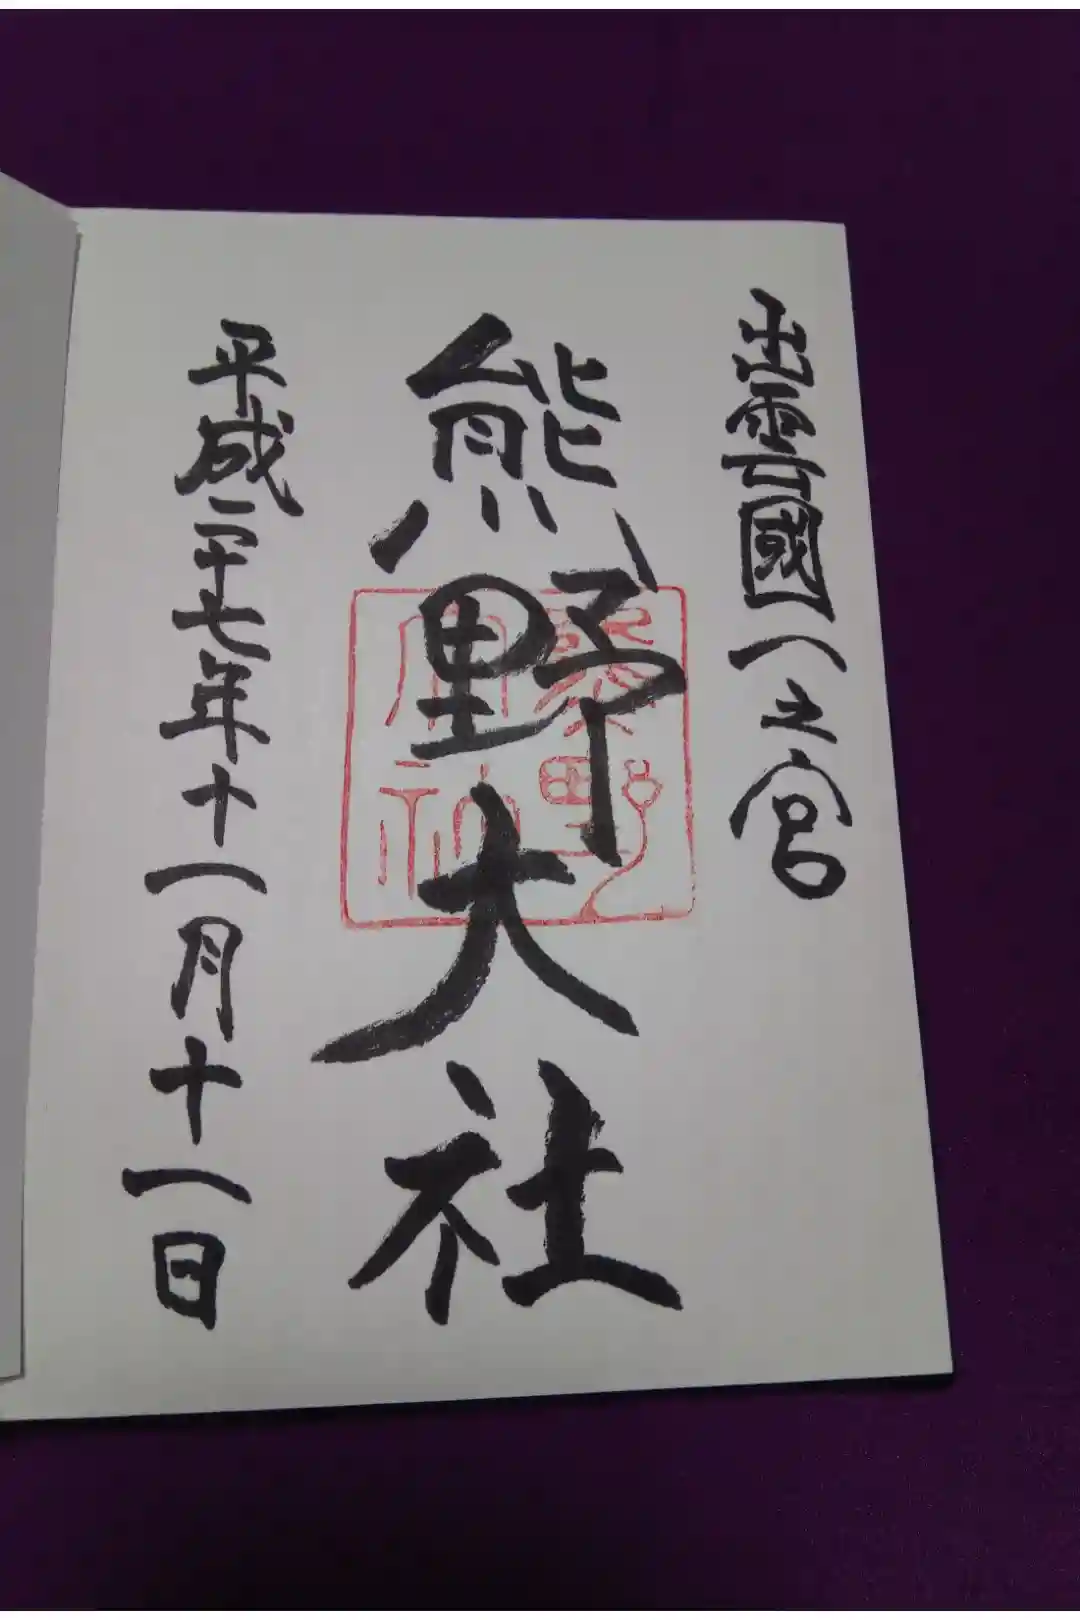 出雲國一之宮
熊野大社
平成二十七年十一月十一日
熊野
大社